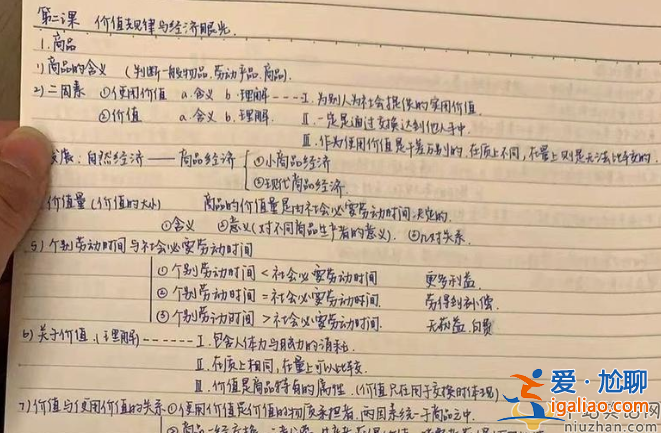 第二课 价值规律与经济眼光
1.商品
1)商品的含义 (判断一般物品.劳动产品.商品).
2)二因素 ①使用价值 a.含义 b.理解---I.为别人为社会提供的实用价值.
②价值 a.含义 b.理解. II.一定是通过交换达到他人手中.
III.作为使用价值是千差万别的,在质上不同,在量上则是无法比较的.
自然经济——商品经济 ①小商品经济
②现代商品经济
价值量(价值的大小) 商品的价值量是由社会必要劳动时间决定的.
①含义 ②意义(对不同商品生产者的意义). ③n对关系.
5)个别劳动时间与社会必要劳动时间
①个别劳动时间<社会必要劳动时间 更多利益.
②个别劳动时间=社会必要劳动时间. 劳得到补偿.
③个别劳动时间>社会必要劳动时间. 无利益.白费
6)关于价值.(理解)------I.包含人体力与脑力的消耗.
II.在质上相同,在量上可以比较.
III.价值是商品特有的属性.(价值只在用于交换时体现)
7)价值与使用价值的关系①使用价值是价值的物质承担者,两因素统一于商品之中.
爱·尬聊
igaliao.com
niuzhan.com